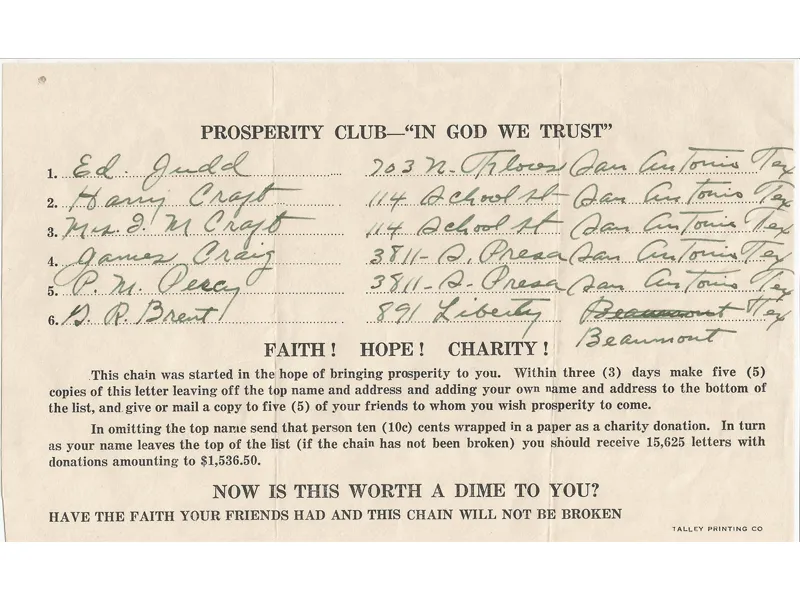 PROSPERITY CLUB—"IN GOD WE TRUST"
1. Ed. Judd 703 N. Flores San Antonio Tex
2. Harry Craft 114 School St San Antonio Tex
3. Mrs. J. M Craft 114 School St San Antonio Tex
4. James Craig 3811- S. Presa San Antonio Tex
5. P. M. Percy 3811- S- Presa San Antonio Tex
6. R. Brent 891 Liberty Beaumont Tex
Beaumont
FAITH! HOPE! CHARITY!
This chain was started in the hope of bringing prosperity to you. Within three (3) days make five (5)
copies of this letter leaving off the top name and address and adding your own name and address to the bottom of
the list, and give or mail a copy to five (5) of your friends to whom you wish prosperity to come.
In omitting the top name send that person ten (10c) cents wrapped in a paper as a charity donation. In turn
as your name leaves the top of the list (if the chain has not been broken) you should receive 15,625 letters with
donations amounting to $1,536.50.
NOW IS THIS WORTH A DIME TO YOU?
HAVE THE FAITH YOUR FRIENDS HAD AND THIS CHAIN WILL NOT BE BROKEN
TALLEY PRINTING CO